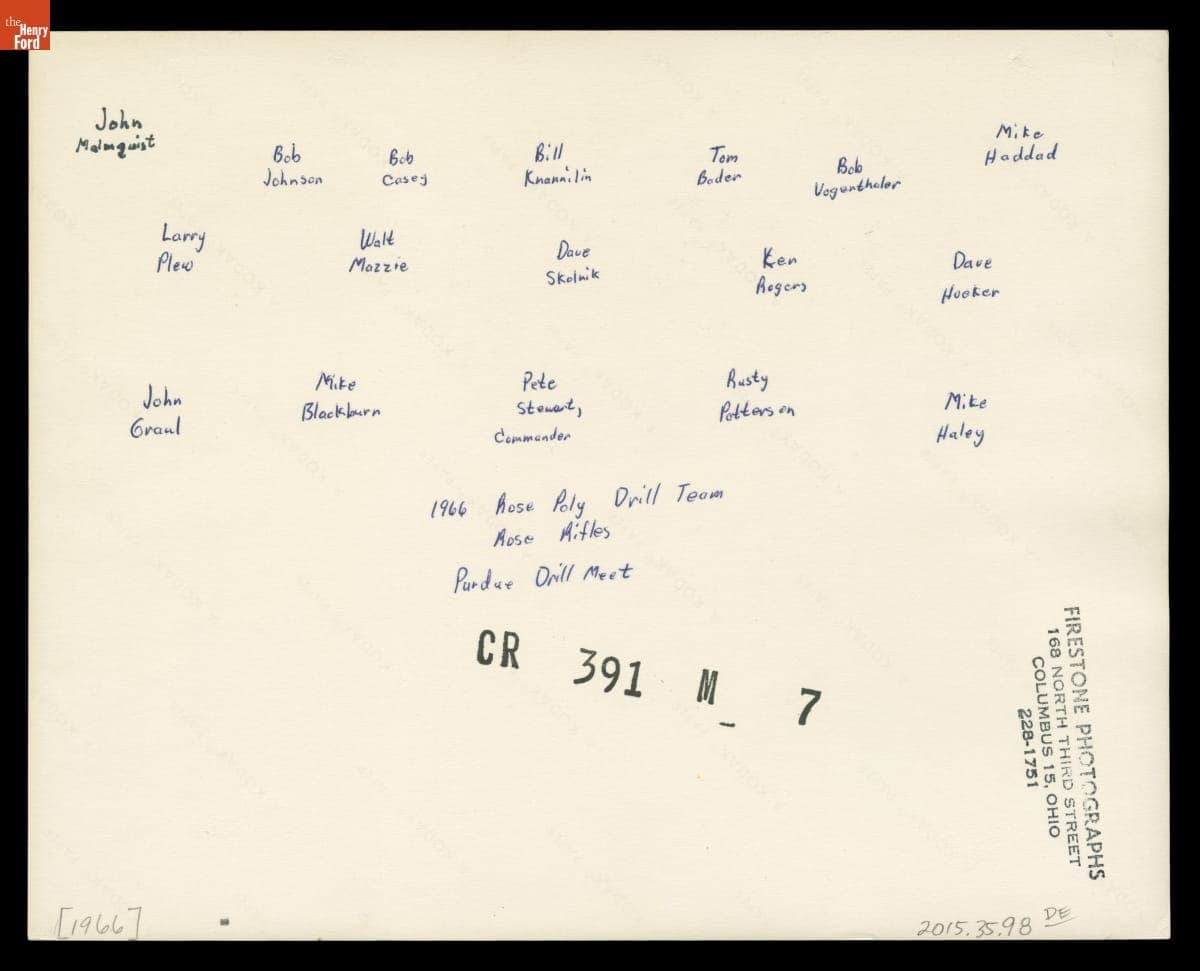 the
Henry
Ford
John
Malmquist
Bob
Johnson
Bob
Casey
Bill
Knannilin
Tom
Bader
Bob
Vogenthaler
Mike
Haddad
Larry
Plew
Walt
Mazzie
Dave
Skolnik
Ken
Rogers
Dave
Hooker
John
Graul
Mike
Blackburn
Pete
Stewart,
Commander
Rusty
Patterson
Mike
Haley
1966 Rose Poly Drill Team
Rose Rifles
Purdue Drill Meet
CR 391 M_ 7
FIRESTONE PHOTOGRAPHS
168 NORTH THIRD STREET
COLUMBUS 15, OHIO
228-1751
[1966]
2015.35.98 DE